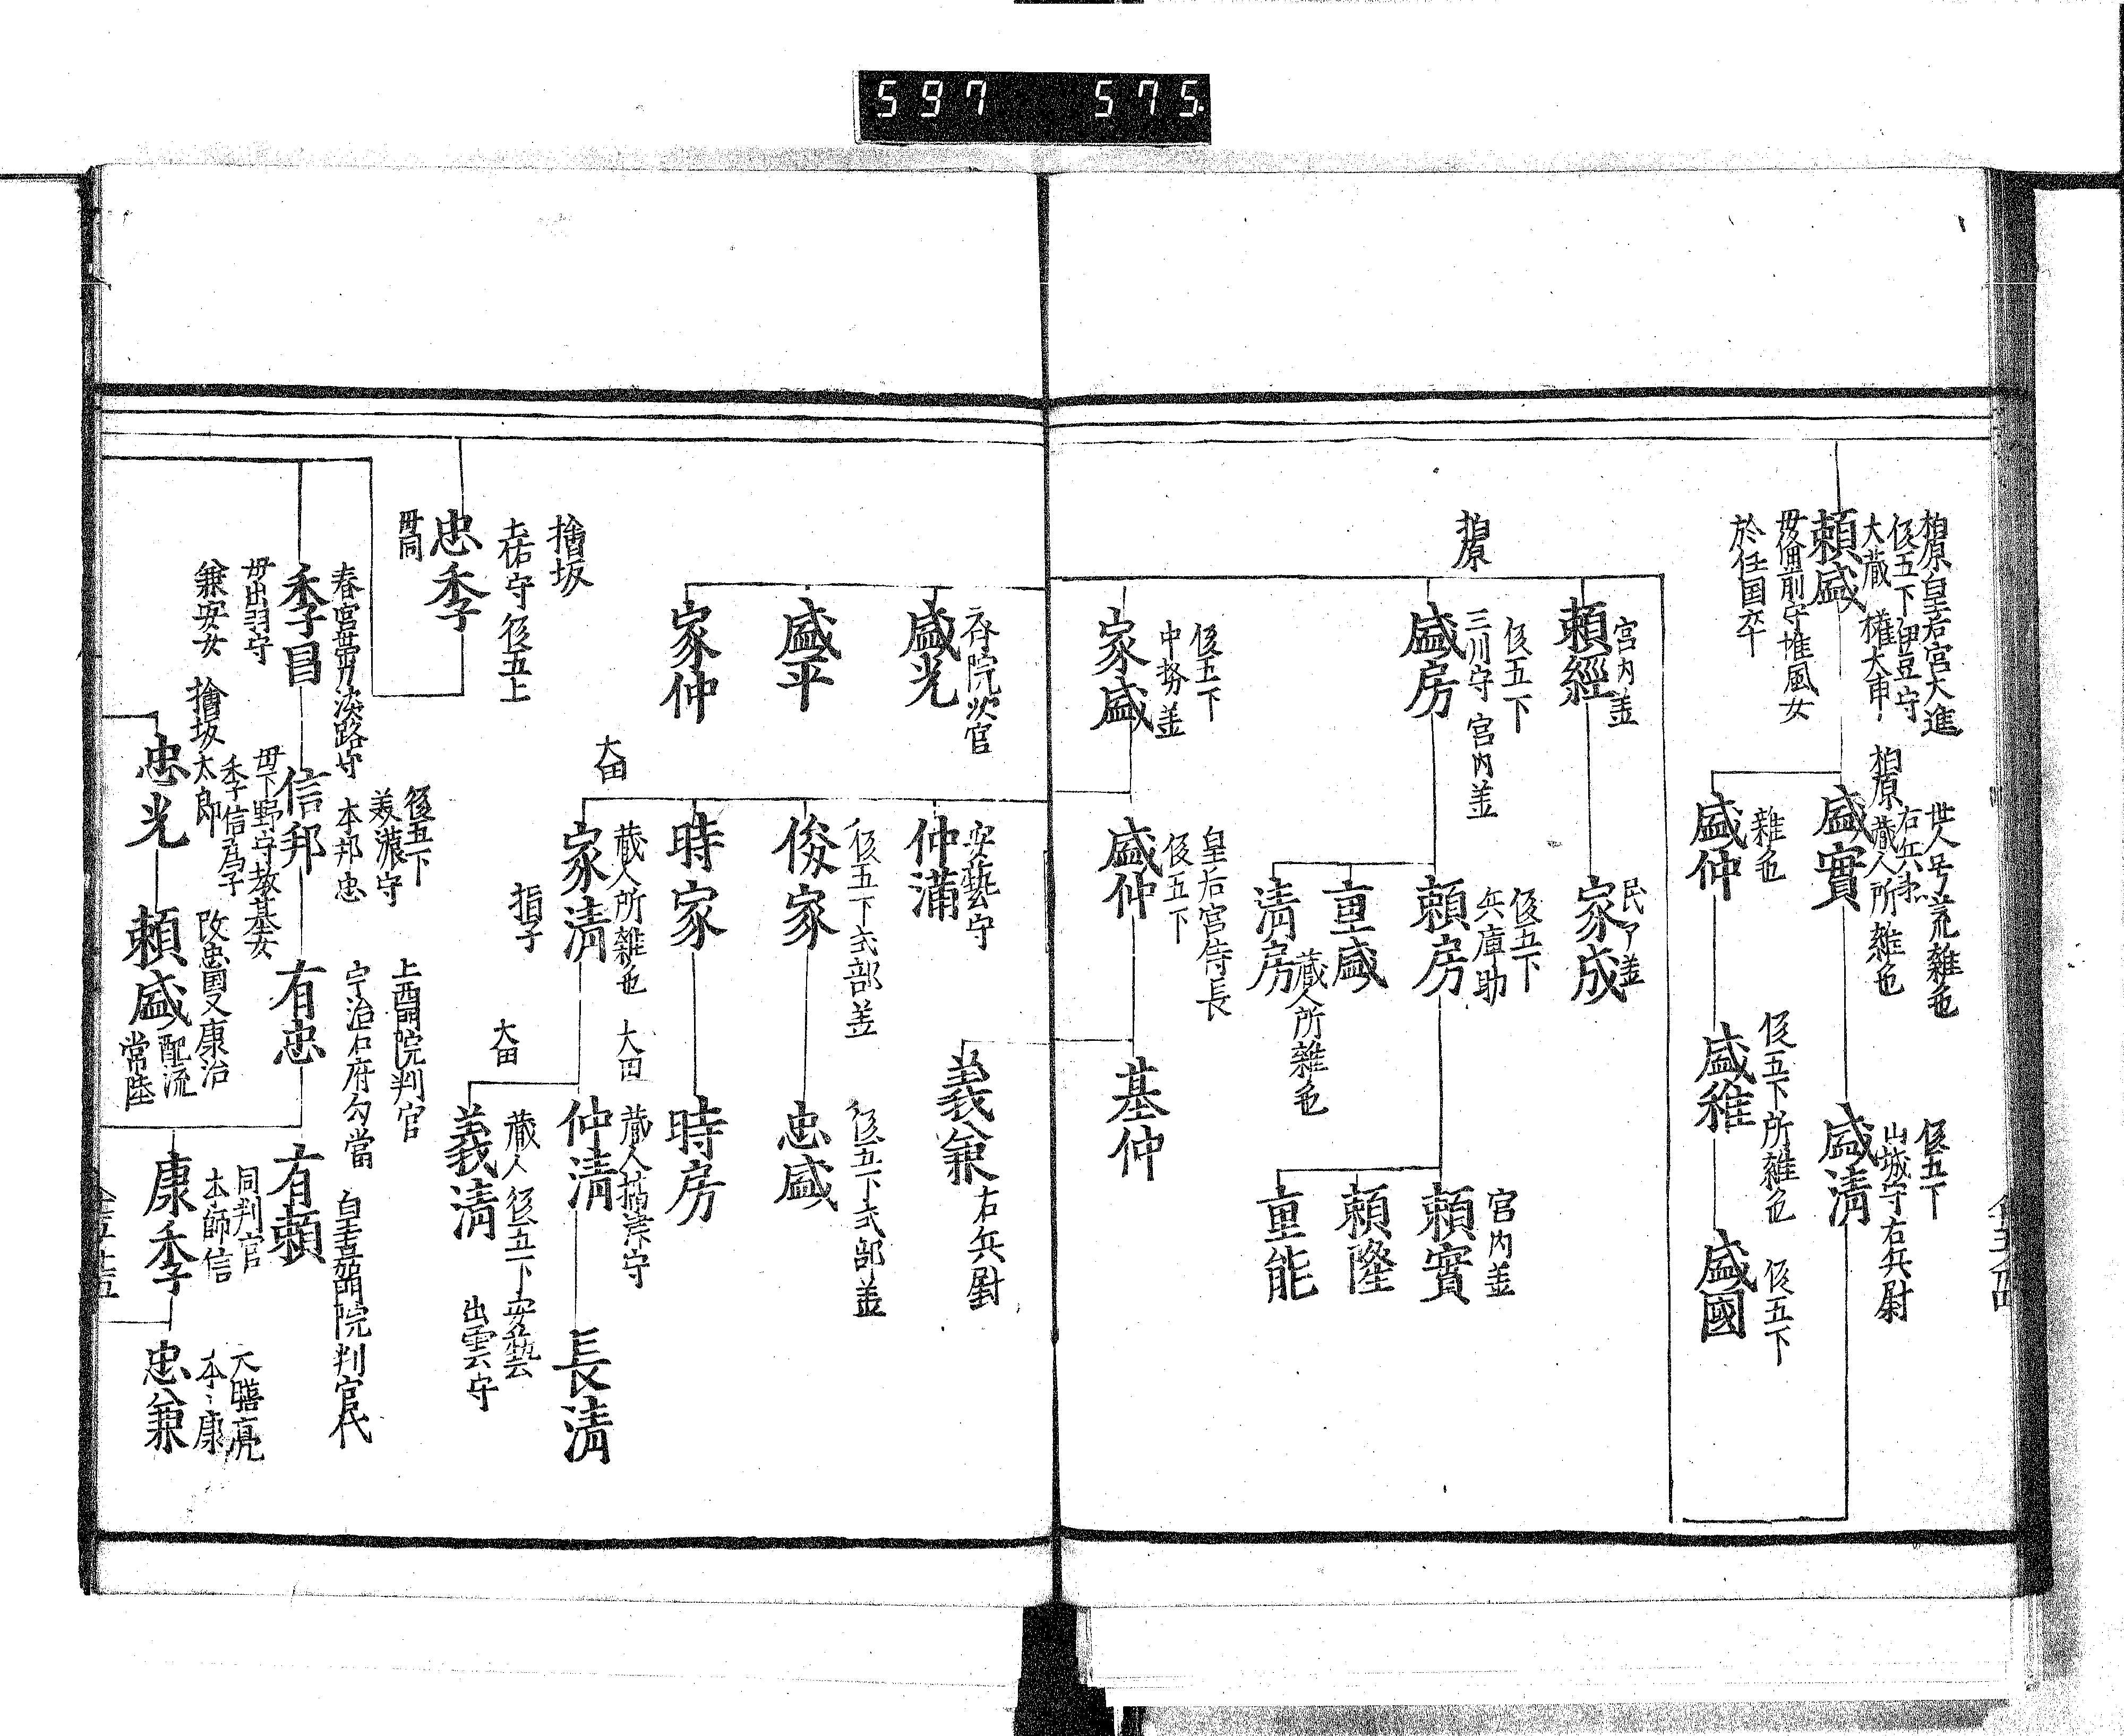 597 575
柏原皇后宮大進
従五下伊豆守
大蔵 権大甫
頼盛
母備前守堆風女
於任国卒
世人号荒雑色
右兵衛
柏原蔵人所雑色
盛實
従五下
山城守右兵尉
盛清
雑色
盛仲
従五下所雑色
盛雅
従五下
盛國
宮内丞
頼經
民ア丞
家成
柏原
従五下
三川守 宮内丞
盛房
従五下
兵庫助
頼房
重盛
清房
蔵人所雑色
宮内丞
頼實
頼隆
重能
従五下
中務丞
家盛
皇后宮侍長
従五下
盛仲
基仲
義兼
右兵尉
斎院次官
盛光
盛平
家仲
安藝守
仲蒲
従五下式部丞
俊家
従五下式部丞
忠盛
時家
時房
大田
蔵人所雑色
家清
指子
大田
蔵人摂津守
仲清
長清
大田
蔵人 従五下 安藝
出雲守
義清
檜坂
土佐守 従五上
忠季
母同
春宮帯刀淡路守
季昌
母出羽守
兼安女
従五下
美濃守
本邦忠
信邦
母下野守教基女
季信為子
上西門院判官
宇治左府勾當
有忠
皇嘉門院判官代
有頼
檜坂太郎
忠光
改忠国又康治
頼盛
配流
常陸
同判官
本師信
康季
大膳亮
本ミ康
忠兼